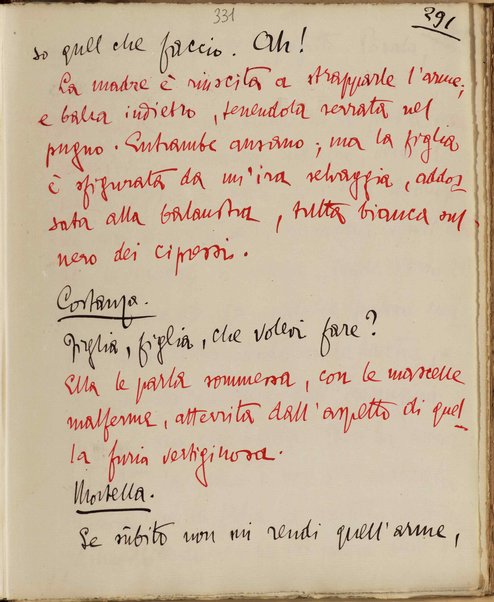 331
291
so quel che faccio. Ah!
La madre è riuscita a strapparle l'arme;
e balza indietro, tenendola serrata nel
pugno. Entrambe ansano; ma la figlia
è sfigurata da un'ira selvaggia, addos-
sata alla balaustra, tutta bianca sul
nero dei cipressi.
Costanza.
Figlia, figlia, che volevi fare?
Ella le parla sommessa, con le mascelle
malferme, atterrita dall'aspetto di quel-
la furia vertiginosa.
Mortella.
Se sùbito non mi rendi quell'arme,